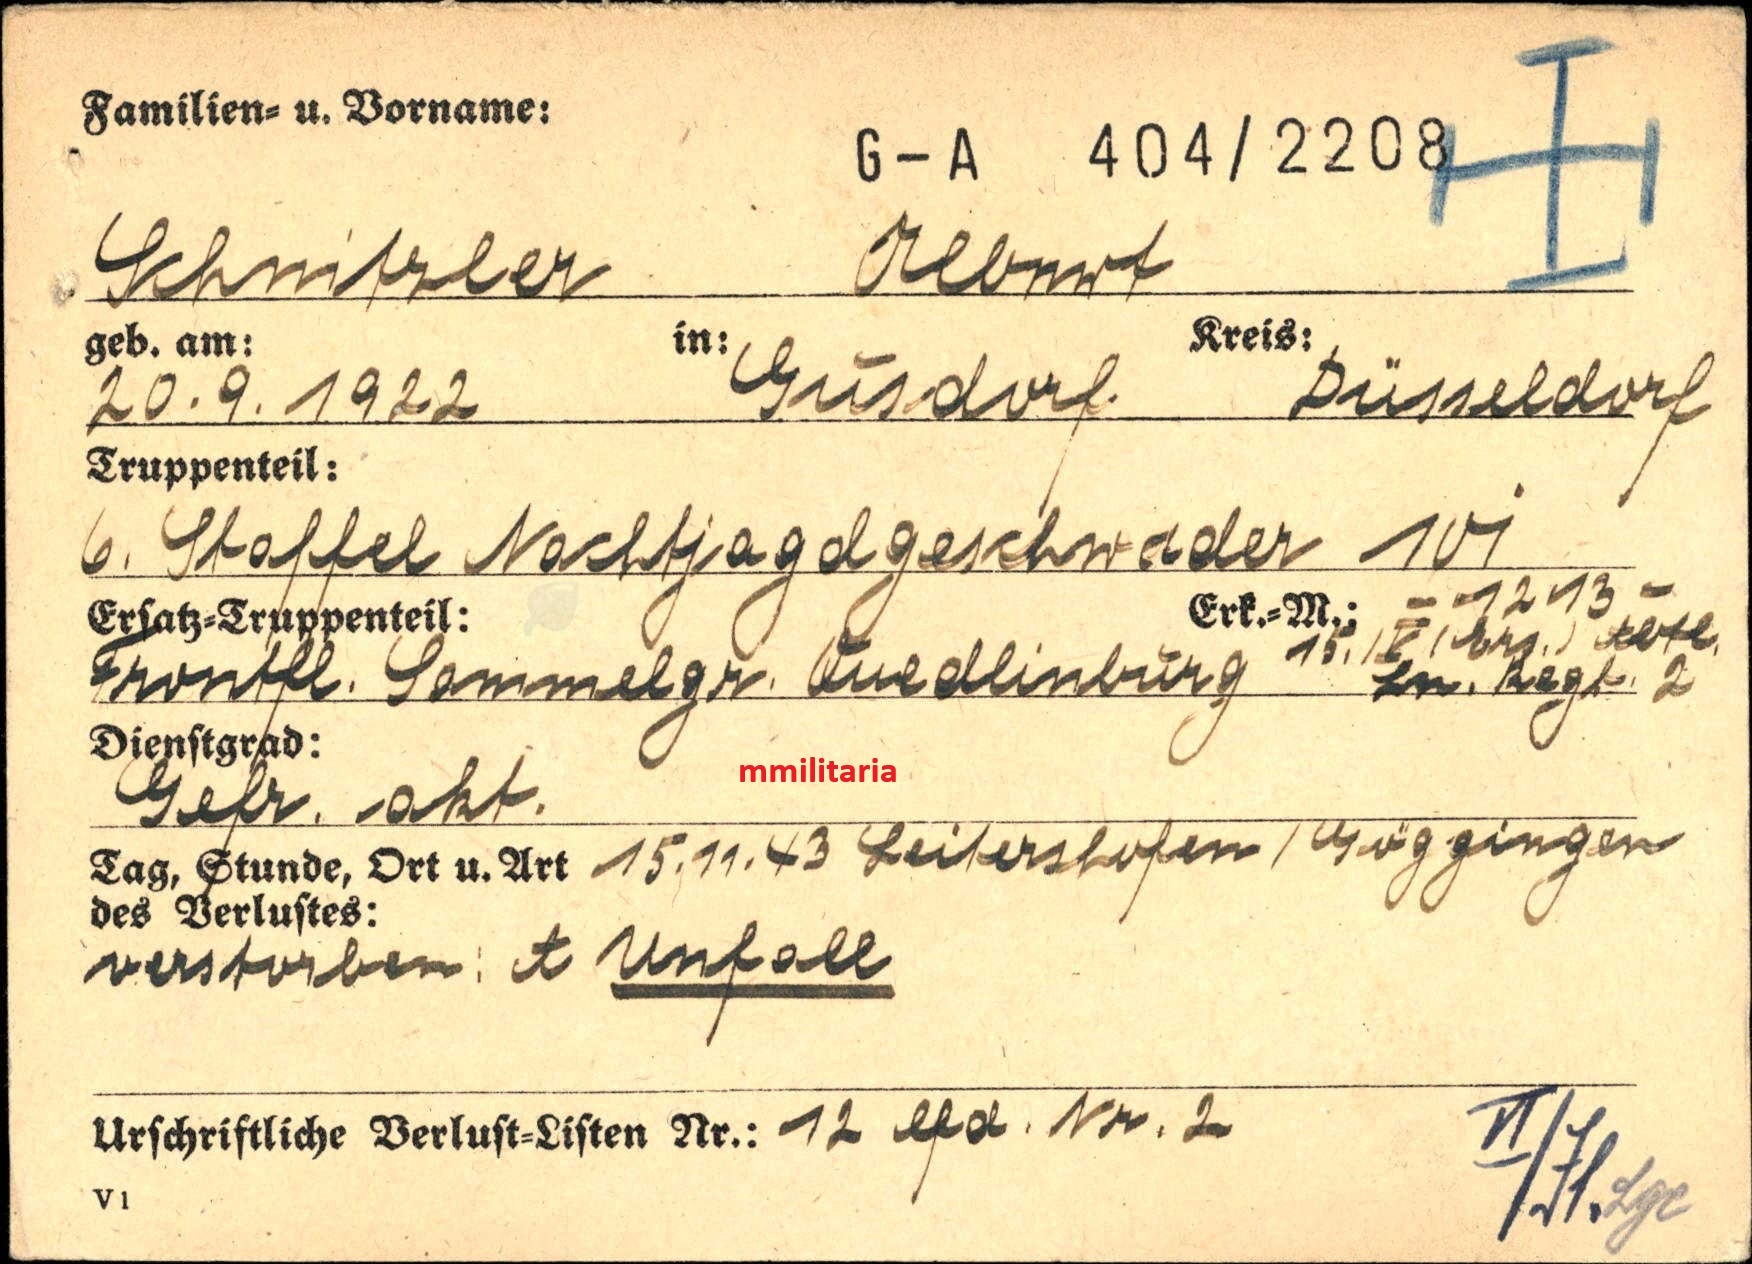 Familien- u. Vorname:
G-A 404/2208
Schnitzler Albert
geb. am: in: Kreis:
20.9.1922 Gusdorf Düsseldorf
Truppenteil:
6. Staffel Nachtjagdgeschwader 101
Ersatz-Truppenteil: Erk.-M.: - 1213 -
Frontfl. Sammelgr. Quedlinburg 15./
Ln. Regt. 2
Dienstgrad:
Gefr. akt.
mmilitaria
Tag, Stunde, Ort u. Art 15.11.43 Leitershofen / Göggingen
des Verlustes:
verstorben: Unfall
Urschriftliche Verlust-Listen Nr.: 12 lfd. Nr. 2
VI/71.
V1